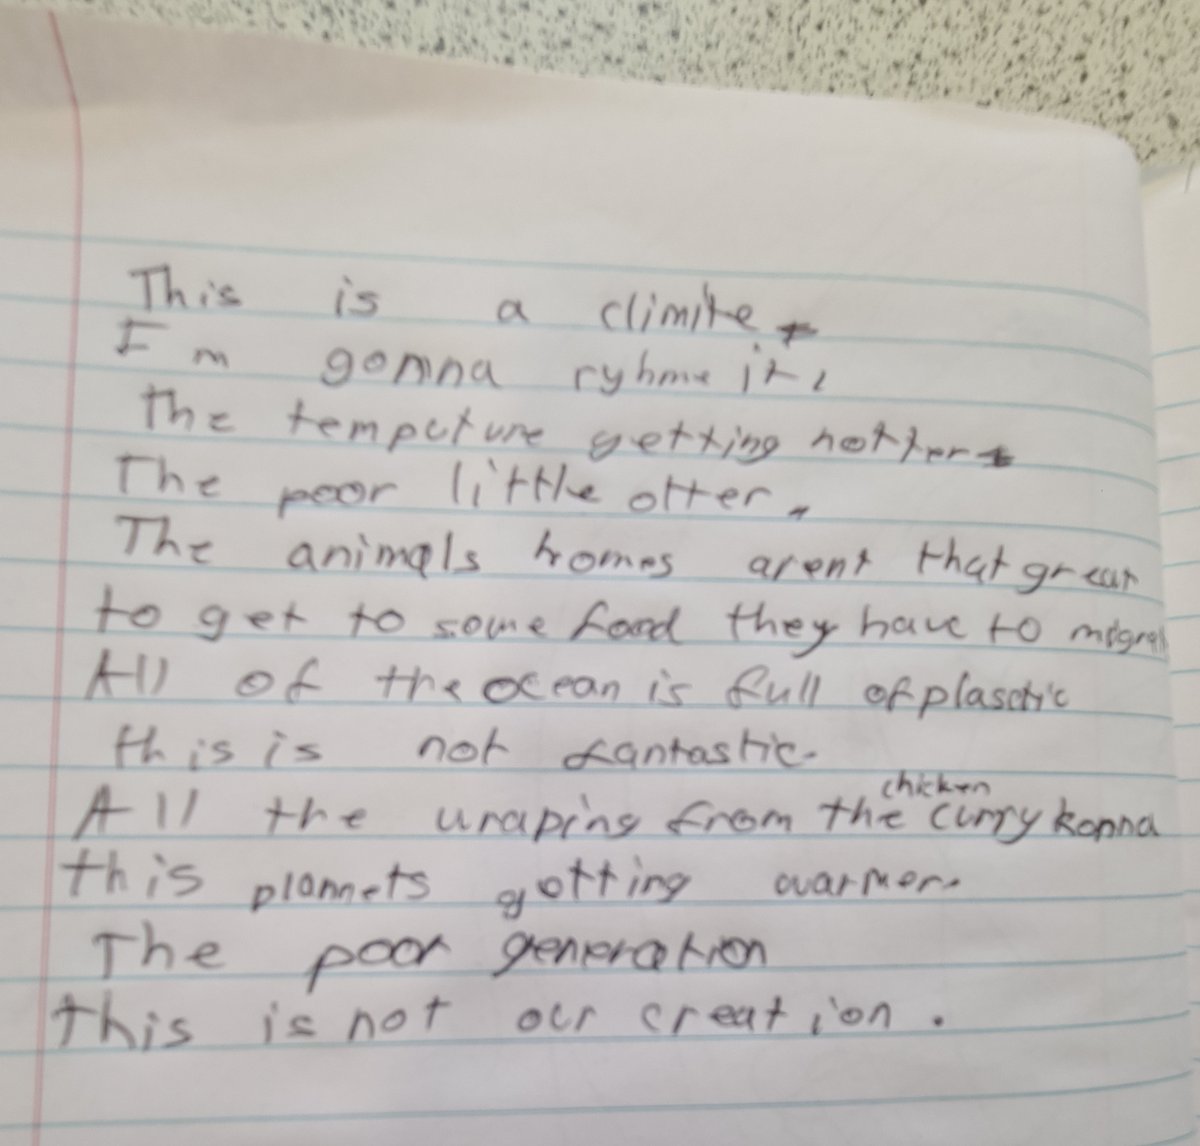 This is a climite
I m gonna ryhme it,
The tempcture getting hotter
The poor little otter.
The animals homes arent that great
to get to some food they have to migrat
All of the ocean is full of plasctic
this is not fantastic.
chicken
All the wraping from the curry konna
this plannets gotting warmer.
The poor generation
this is not our creation.